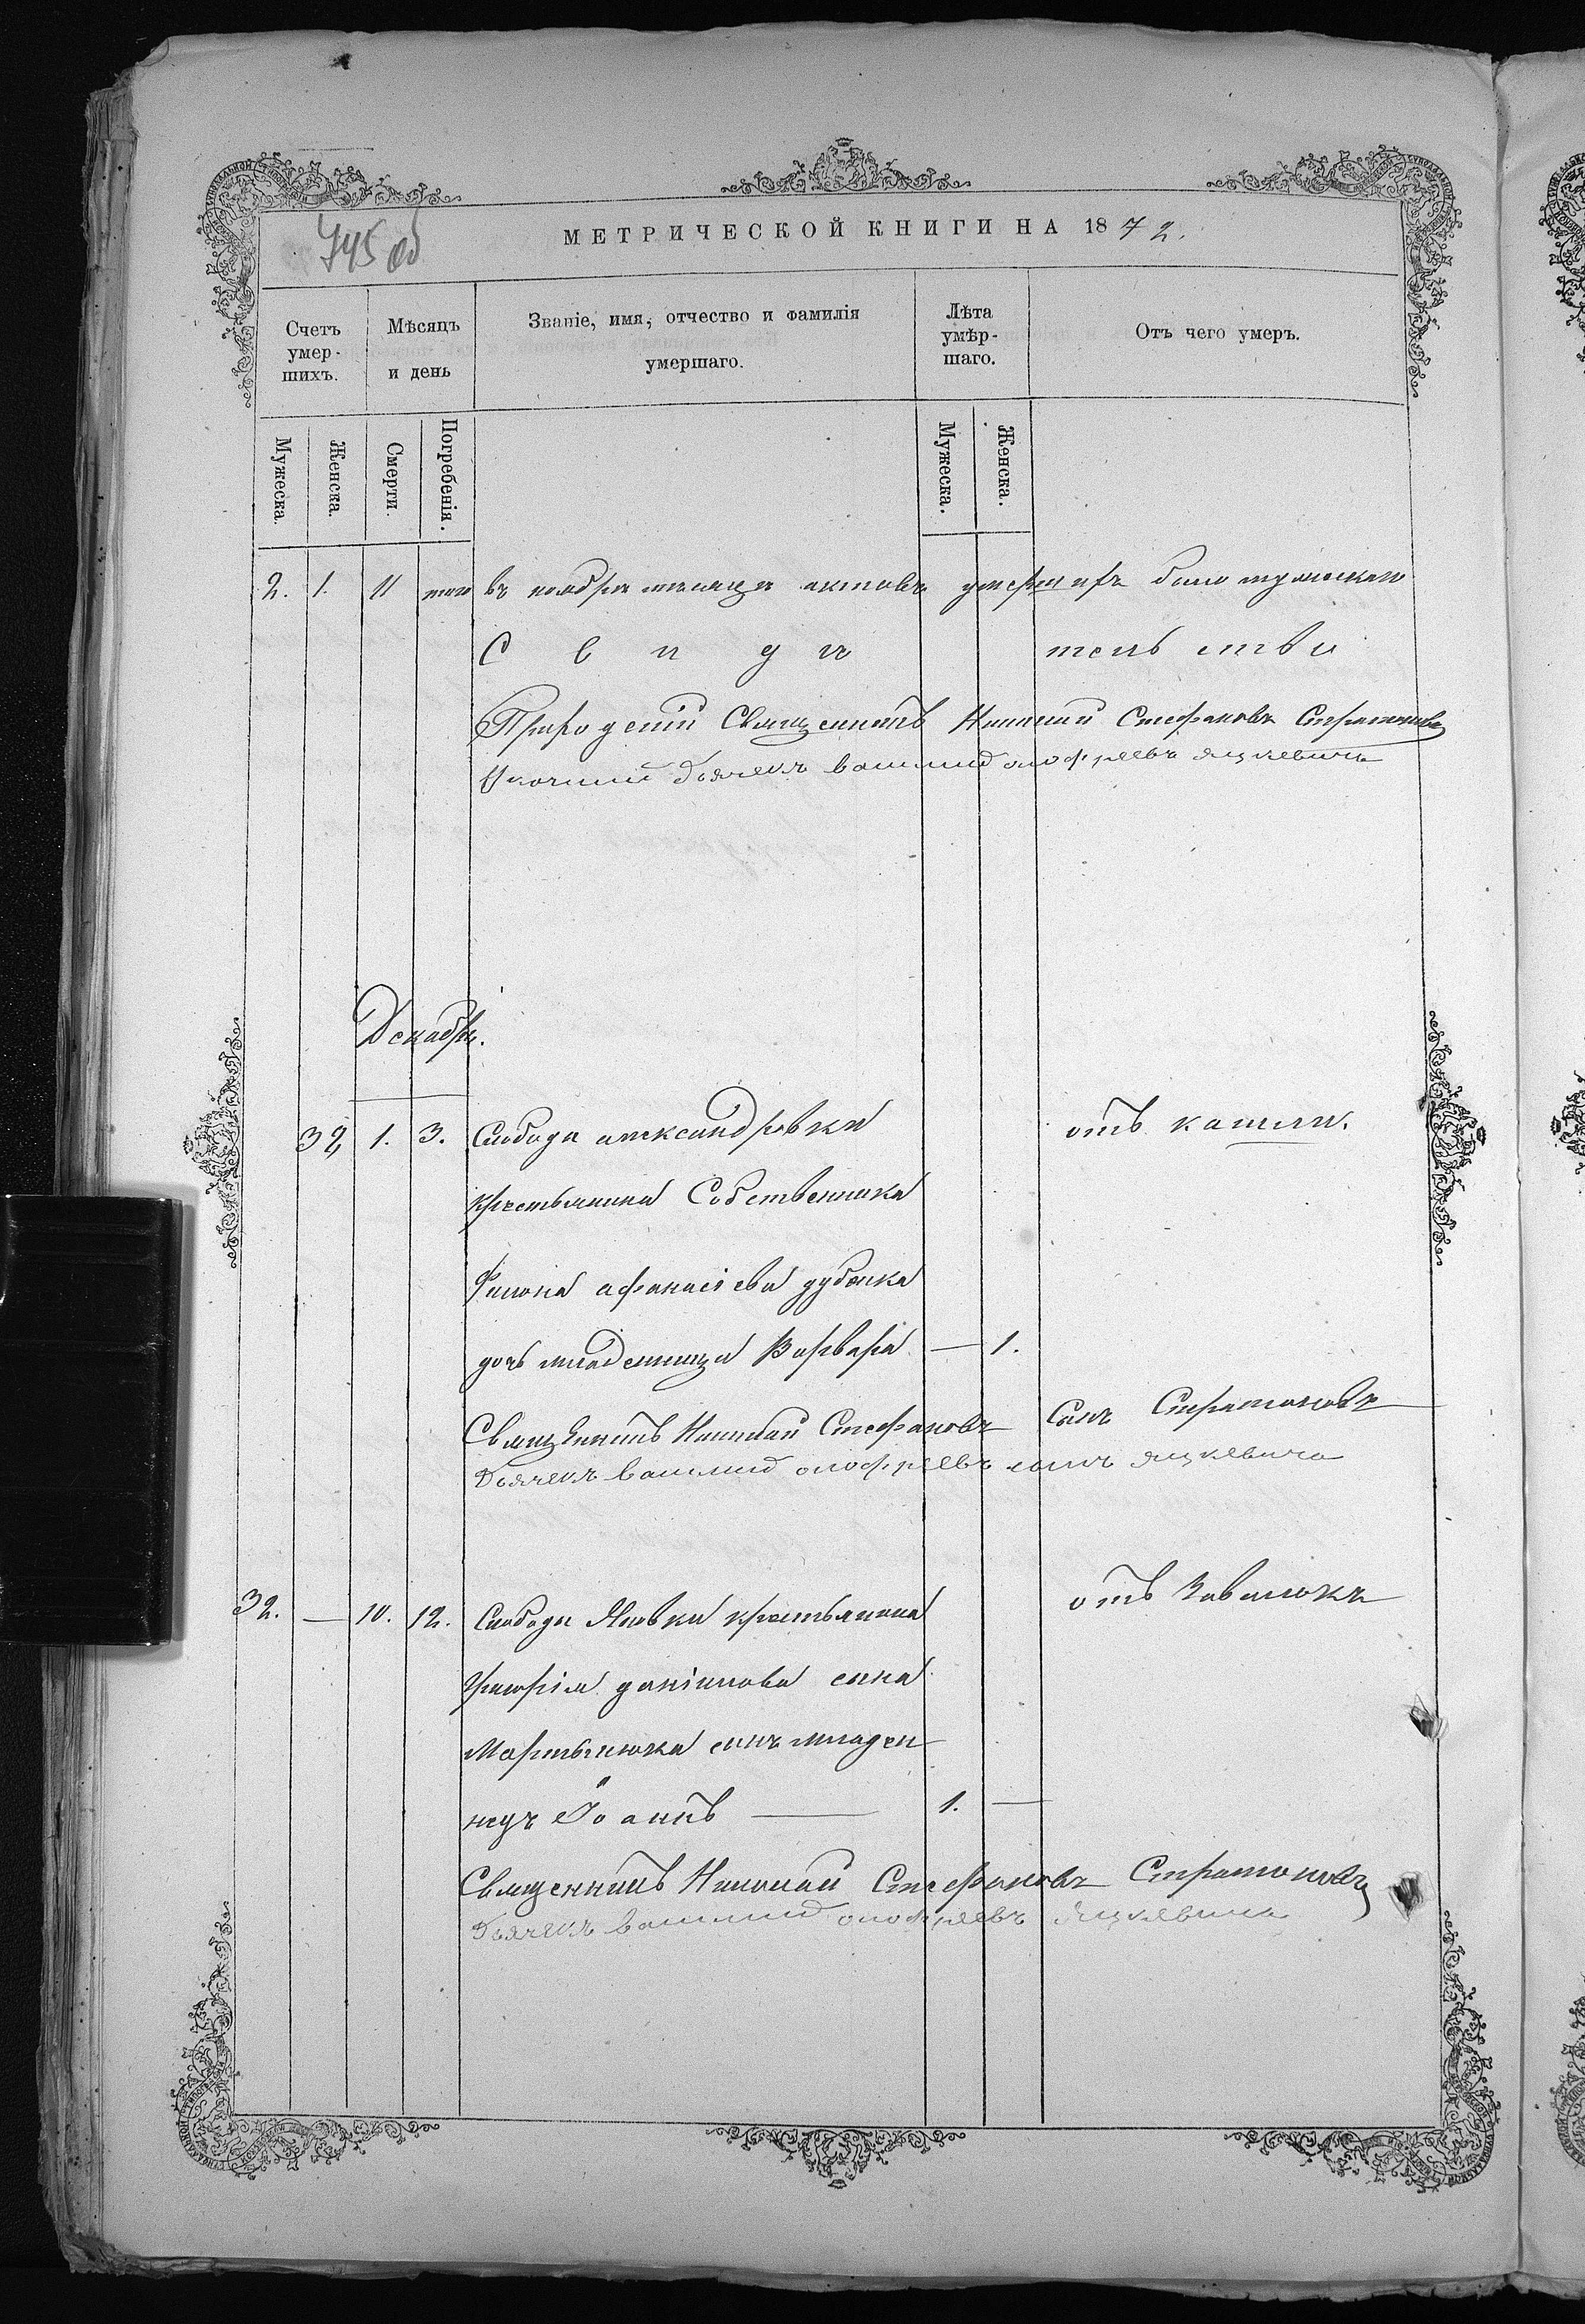 745 об
МЕТРИЧЕСКОЙ КНИГИ НА 1872.
Счетъ умер-шихъ.
Мѣсяцъ и день
Званіе, имя, отчество и фамилія умершаго.
Лѣта умѣр-шаго.
Отъ чего умеръ.
Мужеска.
Женска.
Смерти.
Погребенія.
Мужеска.
Женска.
2. 1. 11 того въ ноябрѣ мѣсяцѣ актовъ умершихъ было мужеска
С в и д ѣ тель ство
Приходскій Священникъ Николай Стефановъ Стратоновъ
Дьячекъ Василий онофреевъ Яцкевичъ
Декабрь.
32, 1. 3. Слободы александровки отъ кашля.
крестьянина Собственника
Филона афанасіева дубенка
дочь младеница Варвара — 1.
Священникъ Николай Стефановъ Сынъ Стратоновъ
Дьячекъ Василий онофреевъ сынъ Яцкевичъ
32. — 10. 12. Слободы Яновки крестьянина отъ Завалокъ
Григорія даніилова сына
Мартынюка сынъ младен
нецъ Іоаннъ — 1. —
Священникъ Николай Стефановъ Стратоновъ
Дьячекъ Василий онофреевъ Яцкевичъ